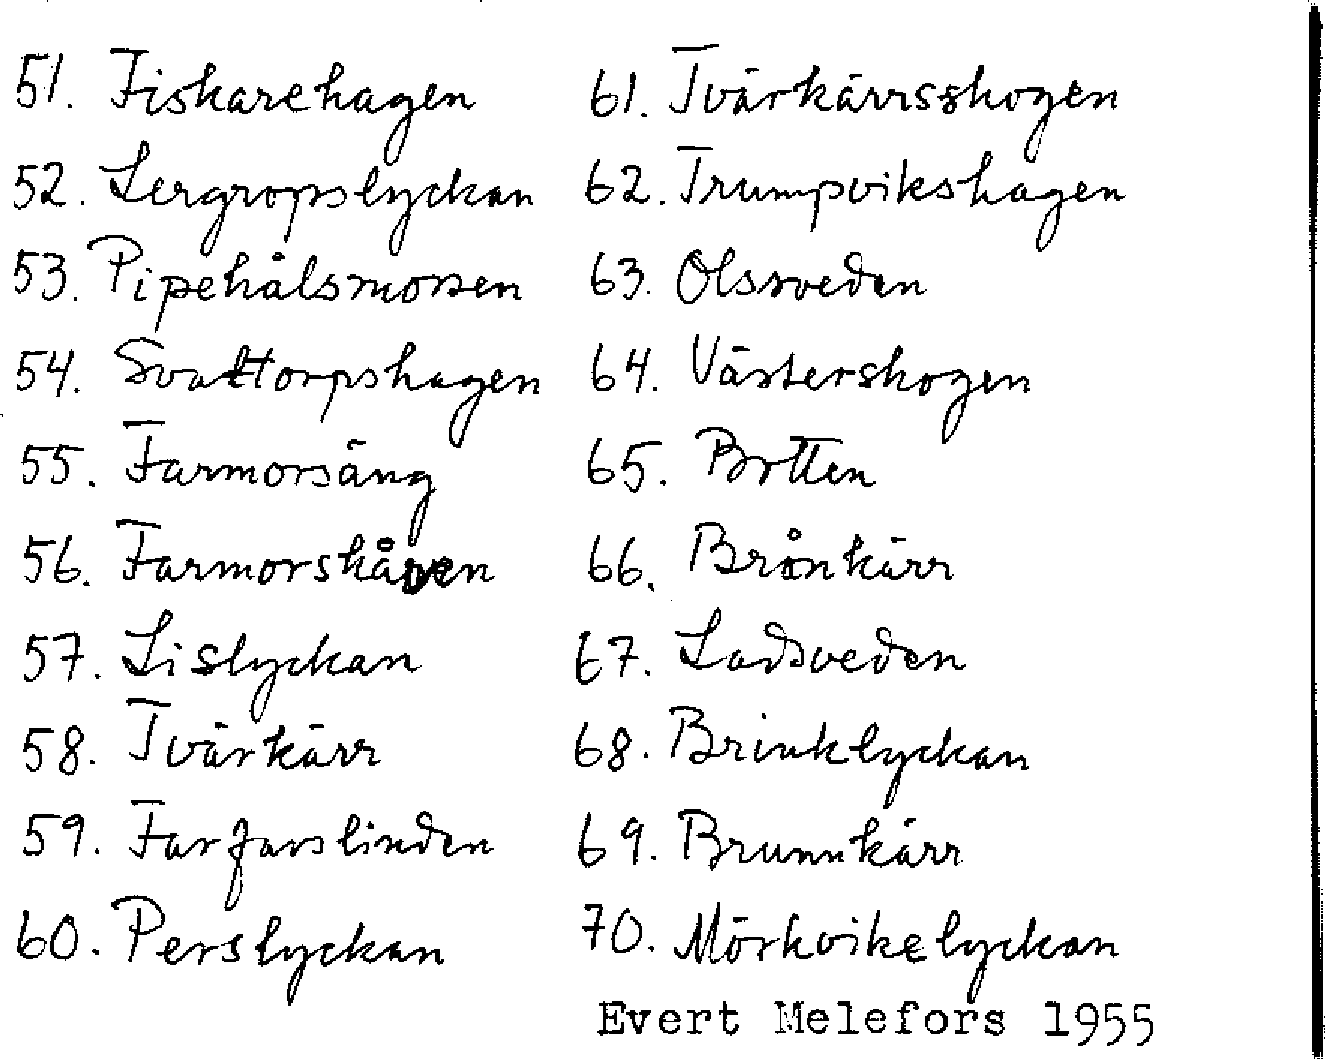 51. Fiskarehagen
52. Lergropslyckan
53. Pipehålsmossen
54. Svattorpshagen
55. Farmorsäng
56. Farmorskåven
57. Lislyckan
58. Tvärkärr
59. Farfarslinden
60. Perslyckan
61. Tvärkärrsskogen
62. Trumpvikshagen
63. Olssveden
64. Västerskogen
65. Brtten
66. Brånkärr
67. Ladsveden
68. Brinklyckan
69. Brunnkärr
70. Mörkvikelyckan
Evert Melefors 1955